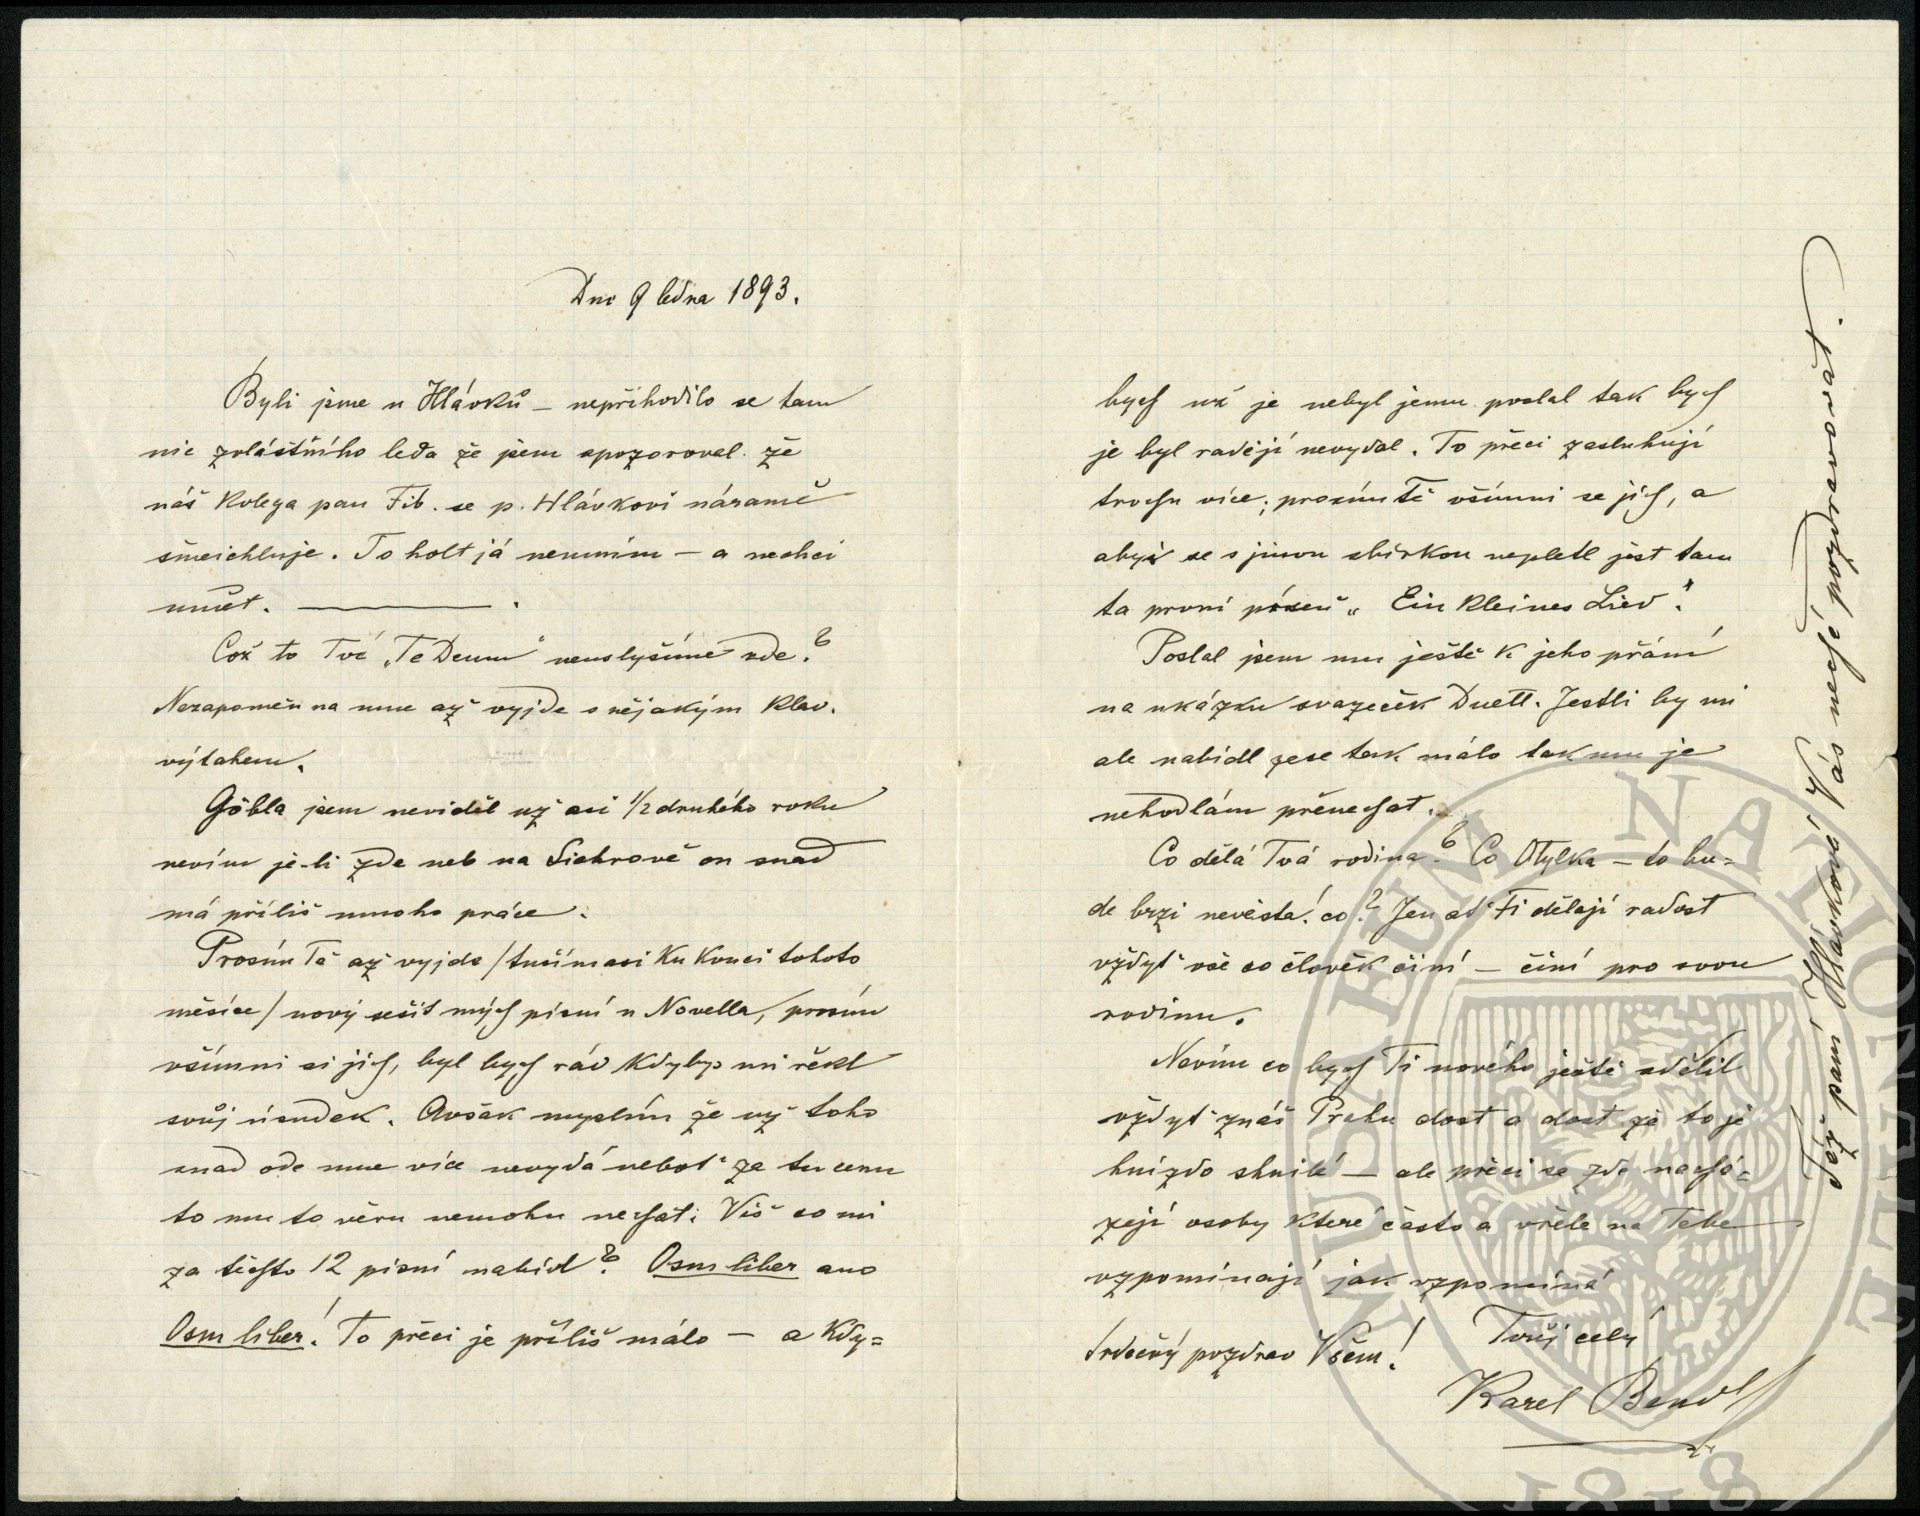 Dne 9 ledna 1893.
Byli jsme u Hlávků – nepřihodilo se tam
nic zvláštního leda že jsem zpozoroval že
náš kolega pan Fib. se p. Hlávkovi náramě
šmeichluje. To holt já neumím – a nechci
umět. ———.
Což to Tvé „Te Deum“ neuslyšíme zde?
Nezapomeň na mne až vyjde s nějakým klav.
výtahem.
Göbla jsem neviděl už asi 1/2 druhého roku
nevím je-li zde neb na Sichrově on snad
má příliš mnoho práce.
Prosím Tě až vyjde /tuším asi ku konci tohoto
měsíce/ nový sešit mých písní u Novella, prosím
všimni si jich, byl bych rád kdybys mi řekl
svůj úsudek. Avšak myslím že už toho
snad ode mne více nevydá neboť za tu cenu
to mu to věru nemohu nechat; Víš co mi
za těchto 12 písní nabídl? Osm liber ano
Osm liber! To přeci je příliš málo – a kdy=
bych už je nebyl jemu poslal tak bych
je byl raději nevydal. To přeci zasluhují
trochu více; prosím tě všimni se jich, a
abys se s jinou sbírkou nepletl jest tam
ta první píseň „Ein kleines Lied“.
Poslal jsem mu ještě k jeho přání
na ukázku svazeček Duett. Jestli by mi
ale nabídl zase tak málo tak mu je
nehodlám přenechat.
Co dělá Tvá rodina? Co Otylka – to bu=
de brzi nevěsta! co? Jen ať Ti dělají radost
vždyť vše co člověk činí – činí pro svou
rodinu.
Nevím co bych Ti nového ještě sdělil
vždyť znáš Prahu dost a dost že to je
hnízdo shnilé – ale přeci se zde nachá=
zejí osoby které často a vřele na Tebe
vzpomínají jak vzpomíná
Tvůj celý
Srdečný pozdrav Všem!
Karel Bendl
Též paní Hlávková Vás nechá pozdravovat.
MUSEUM NATIONALE
1818